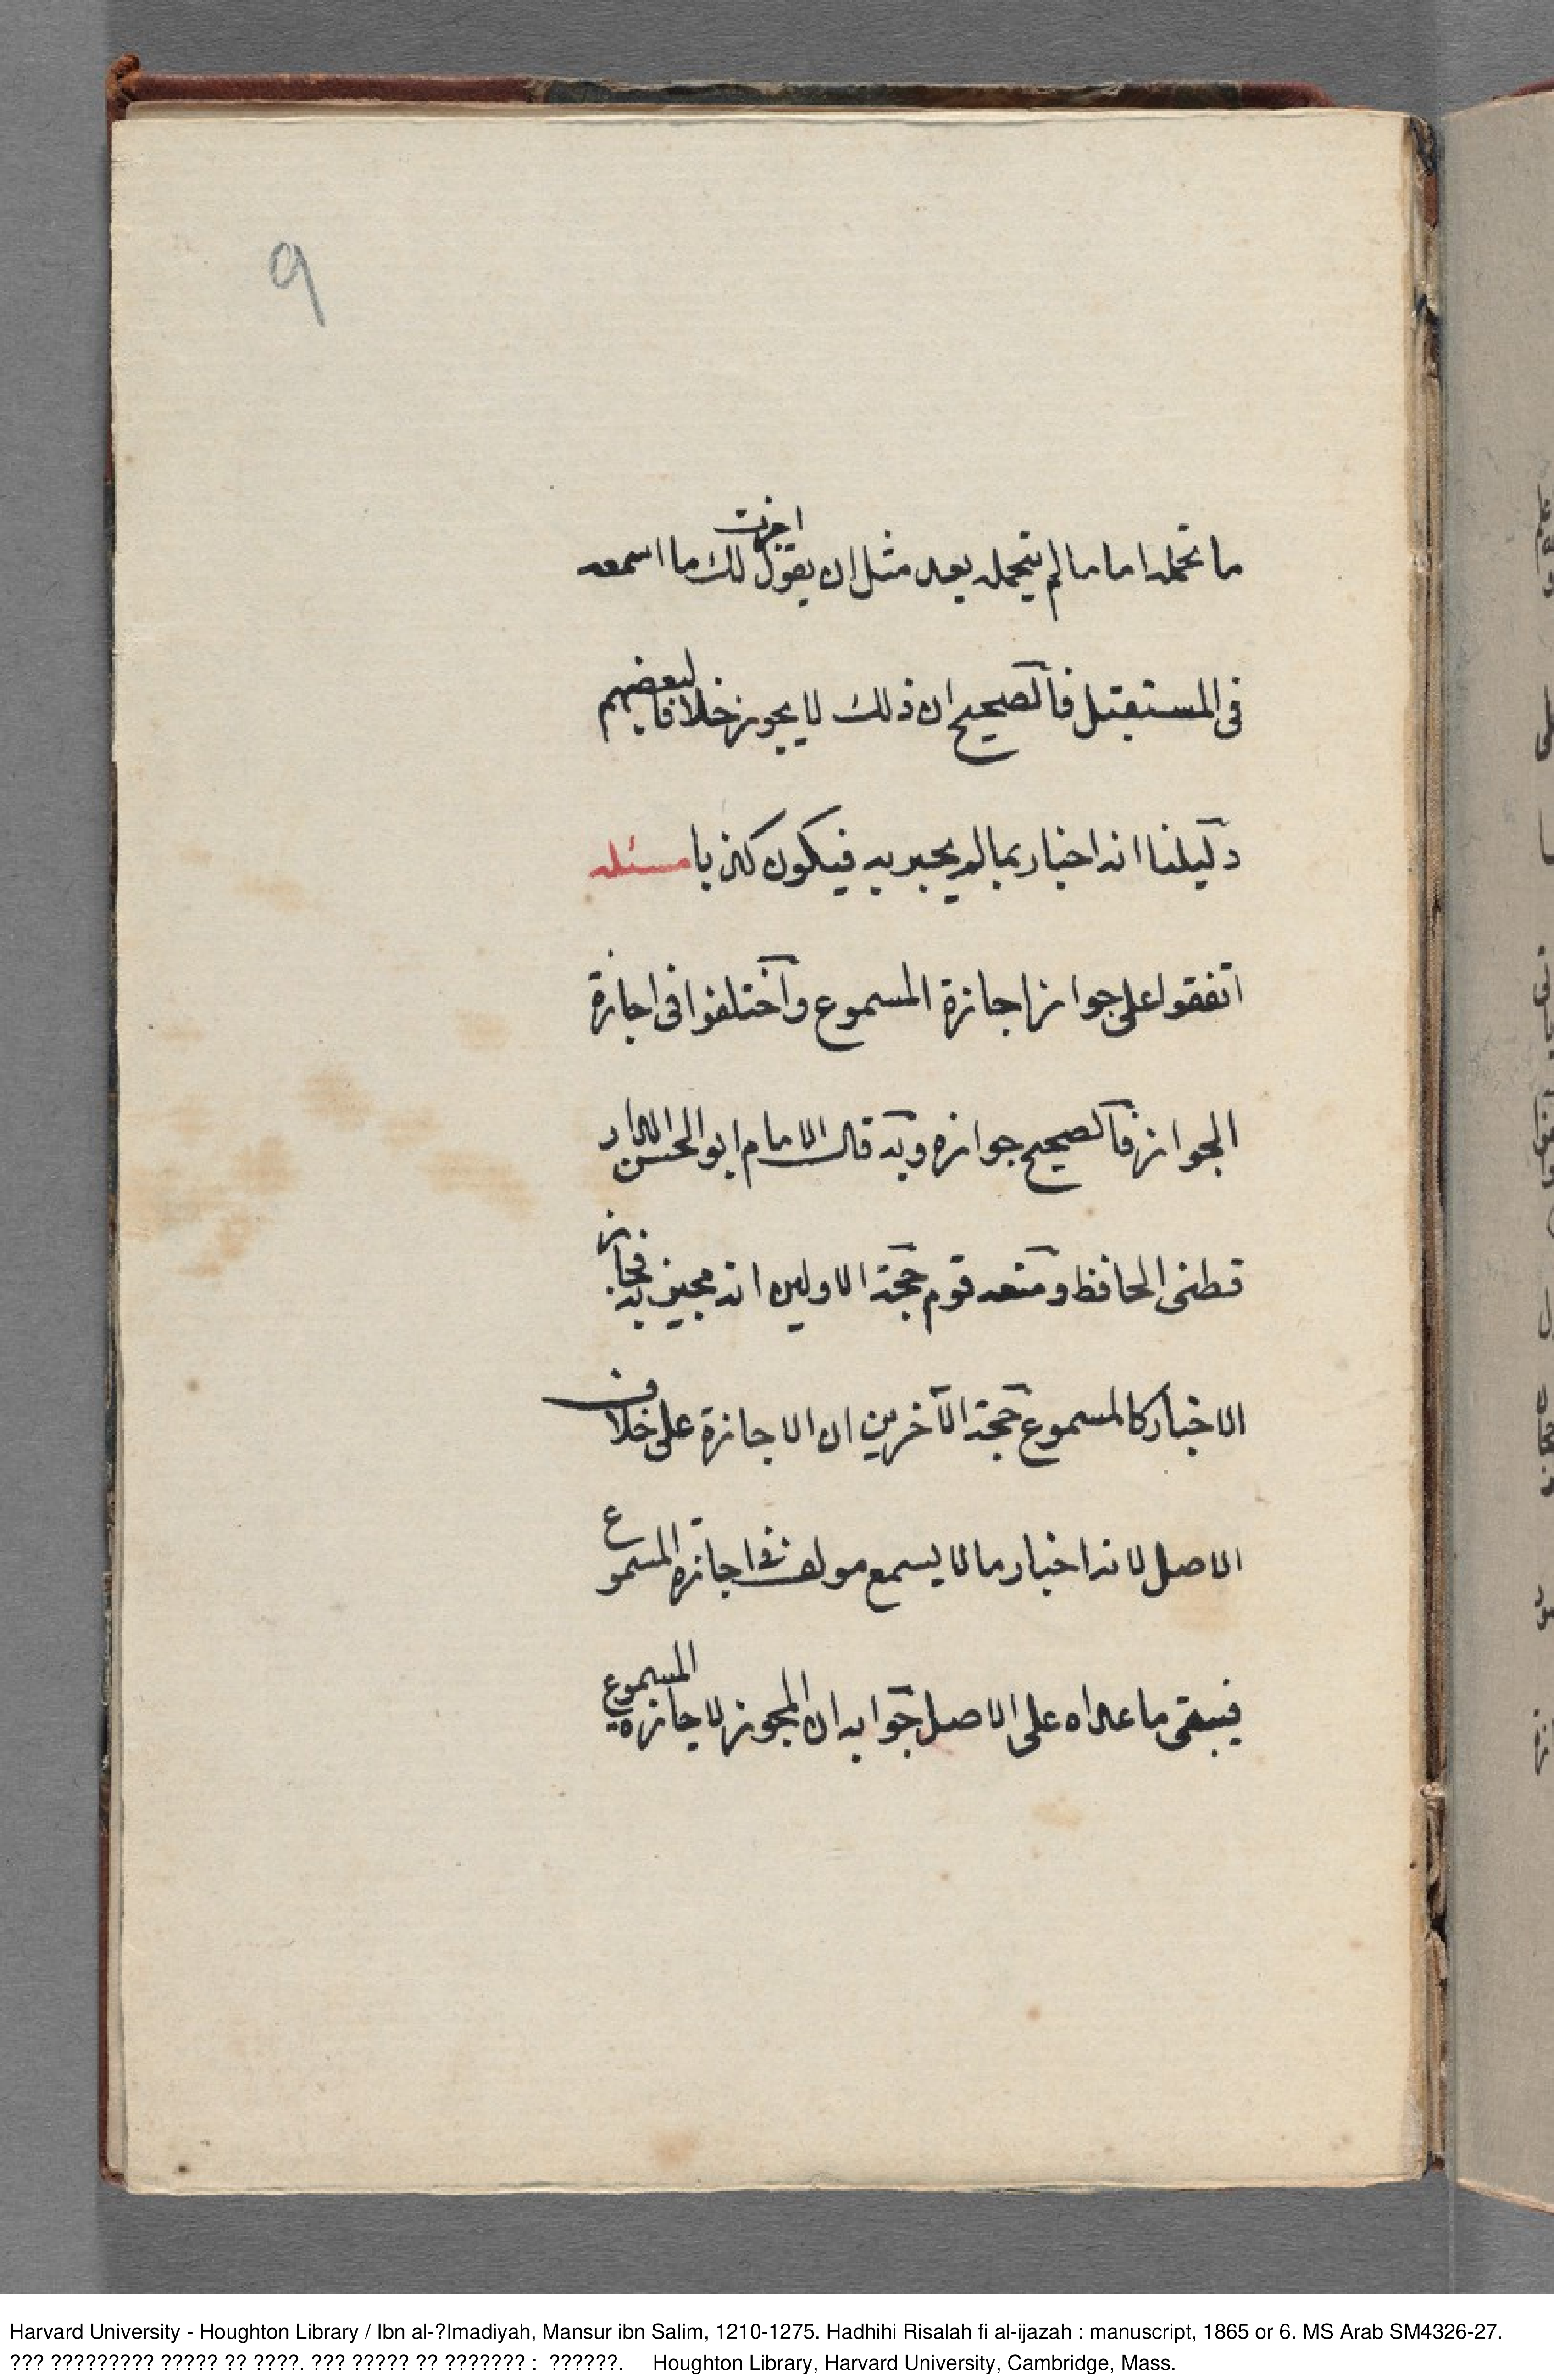 ٩
ما تحمله اما ما لم يتحمله بعد مثل ان يقول اجزت لك ما اسمعه
فى المستقبل فالصحيح ان ذلك لا يجوز خلافا لبعضهم
دليلنا انه اخبار بما لم يخبر به فيكون كذبا مسئله
اتفقوا على جواز اجازة المسموع واختلفوا فى اجازة
الجواز فالصحيح جوازه وبه قال الامام ابو الحسن الدار
قطنى الحافظ ومنعه قوم حجة الاولين انه مجيز به فجاز
الاخبار كالمسموع حجة الآخرين ان الاجازة على خلاف
الاصل لانه اخبار ما لا يسمع اجازة المسموع
فيبقى ما عداه على الاصل جوابه ان المجوز لاجازة المسموع
Harvard University - Houghton Library / Ibn al-?Imadiyah, Mansur ibn Salim, 1210-1275. Hadhihi Risalah fi al-ijazah : manuscript, 1865 or 6. MS Arab SM4326-27.
??? ????????? ????? ?? ????. ??? ????? ?? ??????? : ??????. Houghton Library, Harvard University, Cambridge, Mass.